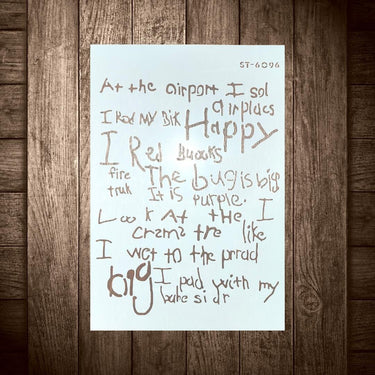 ST-6096
At the airport I sol
airplacs
I Rod MY Bik
Happy
I Red Buooks
fire
truk
The bug is big
It is purple.
Look At tHe I
crsms tre like
I wet to the prrad
big
I pad with my
bare sidr